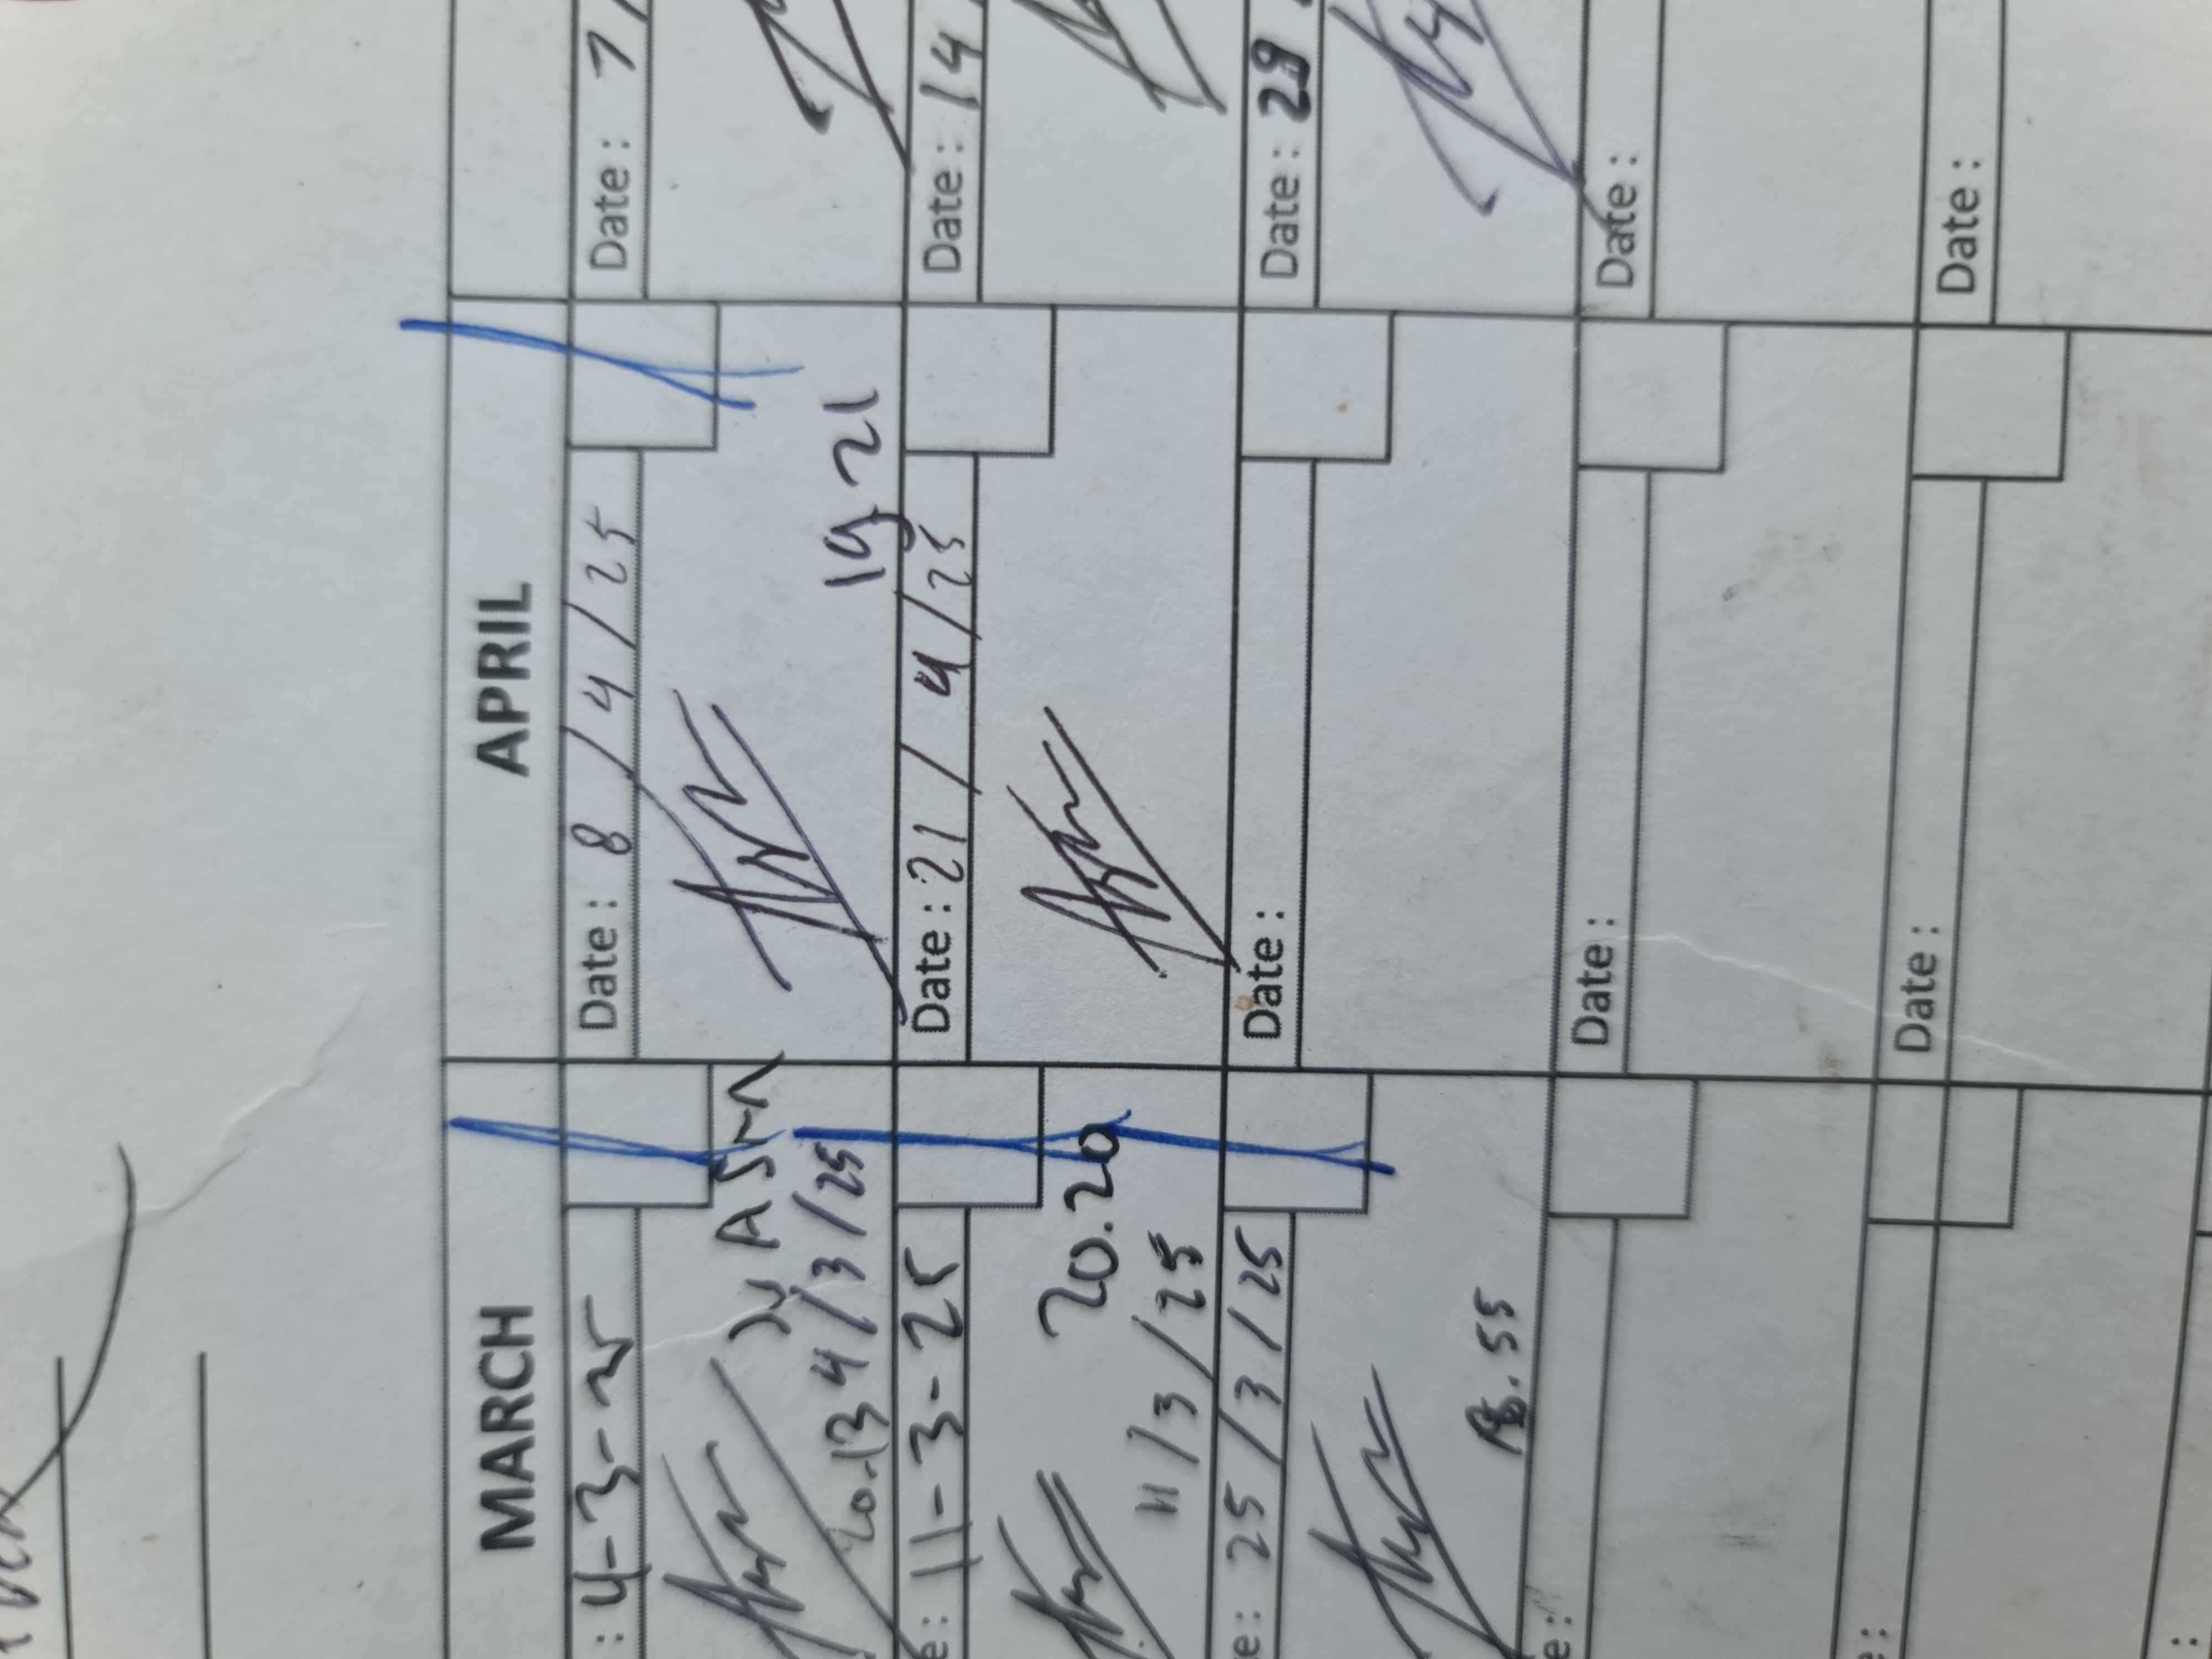 MARCH
: 4-3-25
20.13 4/3/25
e: 11-3-25
20.20
11/3/25
e: 25/3/25
.55
e:
e:
:
APRIL
Date: 8/4/25
19 21
Date: 21/4/25
Date:
Date:
Date:
Date: 7/
Date: 14
Date: 29
Date:
Date: